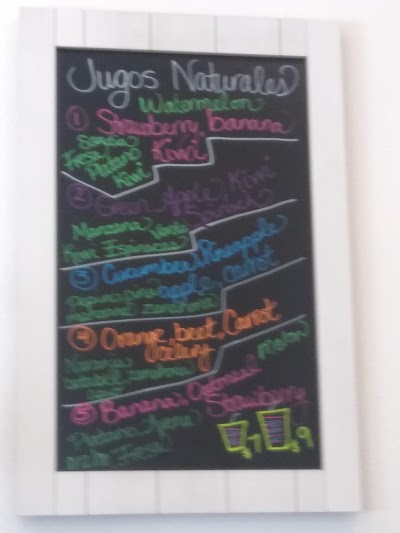 Jugos Naturales
Watermelon
1 Strawberry, banana
Kiwi
Sandia
Fresa
Platano
Kiwi
2 Green Apple, Kiwi
Spinach
Manzana Verde
Kiwi Espinacas
3 Cucumber, Pineapple
apple, carrot
Pepino, piña
zanahoria
4 Orange, beet, Carrot
Celery
Naranja
zanahoria
Melon
5 Banana, Oatmeal
Strawberry
Platano, Avena
Fresa
$7 $9